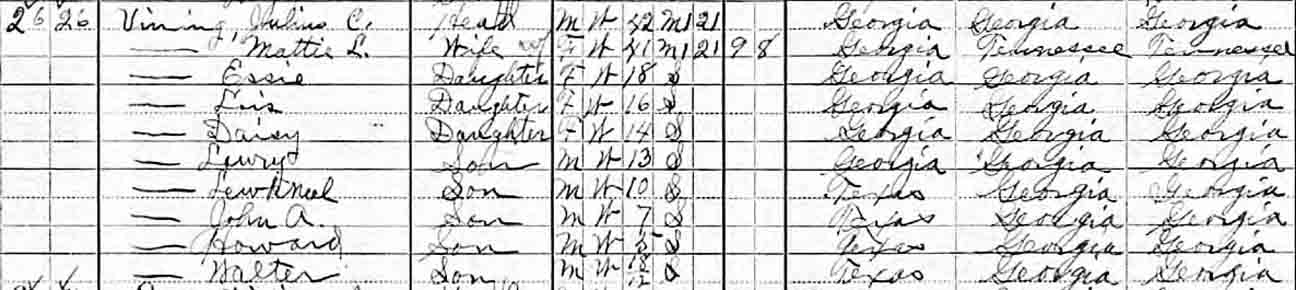 26 26 Vining, Julius C. Head M W 42 M1 21 Georgia Georgia Georgia
— Mattie L. Wife F W 41 M1 21 9 8 Georgia Tennessee Tennessee
— Essie Daughter F W 18 S Georgia Georgia Georgia
— Lois Daughter F W 16 S Georgia Georgia Georgia
— Daisy Daughter F W 14 S Georgia Georgia Georgia
— Lowry Son M W 13 S Georgia Georgia Georgia
— Son M W 10 S Texas Georgia Georgia
— John A. Son M W 7 S Texas Georgia Georgia
— Howard Son M W 5 S Texas Georgia Georgia
— Walter Son M W 18/12 S Texas Georgia Georgia